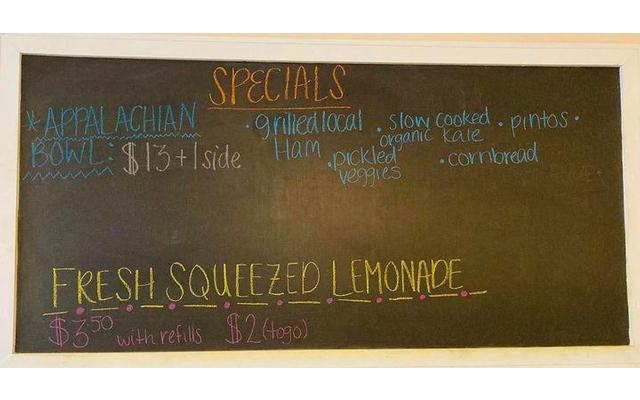 SPECIALS
*APPALACHIAN
BOWL: $13+1 side
• grilled local Ham
• slow cooked organic Kale
• pintos •
• pickled veggies
• cornbread
FRESH SQUEEZED LEMONADE
$3.50 with refills $2 (togo)